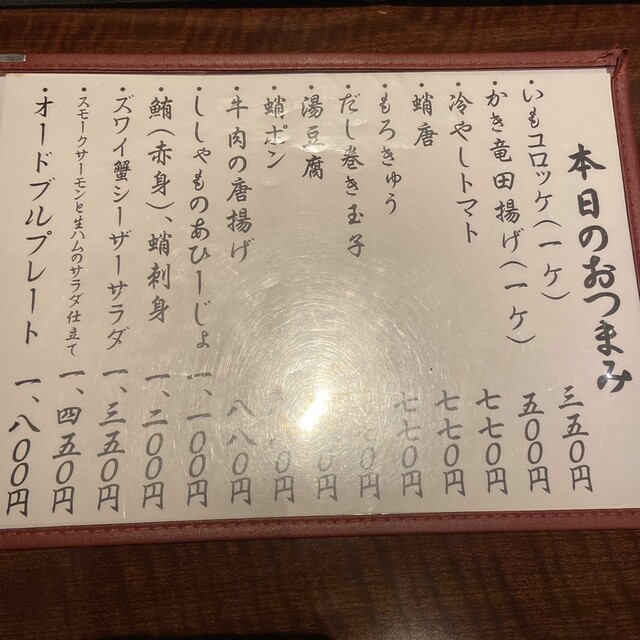 本日のおつまみ
・いもコロッケ(一ヶ) 三五〇円
・かき竜田揚げ(一ヶ) 五〇〇円
・冷やしトマト 七七〇円
・蛸唐 七七〇円
・もろきゅう 七七〇円
・だし巻き玉子
・湯豆腐
・蛸ポン
・牛肉の唐揚げ 八八〇円
・ししゃものあひーじょ 一、一〇〇円
・鮪(赤身)、蛸刺身 一、二〇〇円
・ズワイ蟹シーザーサラダ 一、三五〇円
・スモークサーモンと生ハムのサラダ仕立て 一、四五〇円
・オードブルプレート 一、八〇〇円